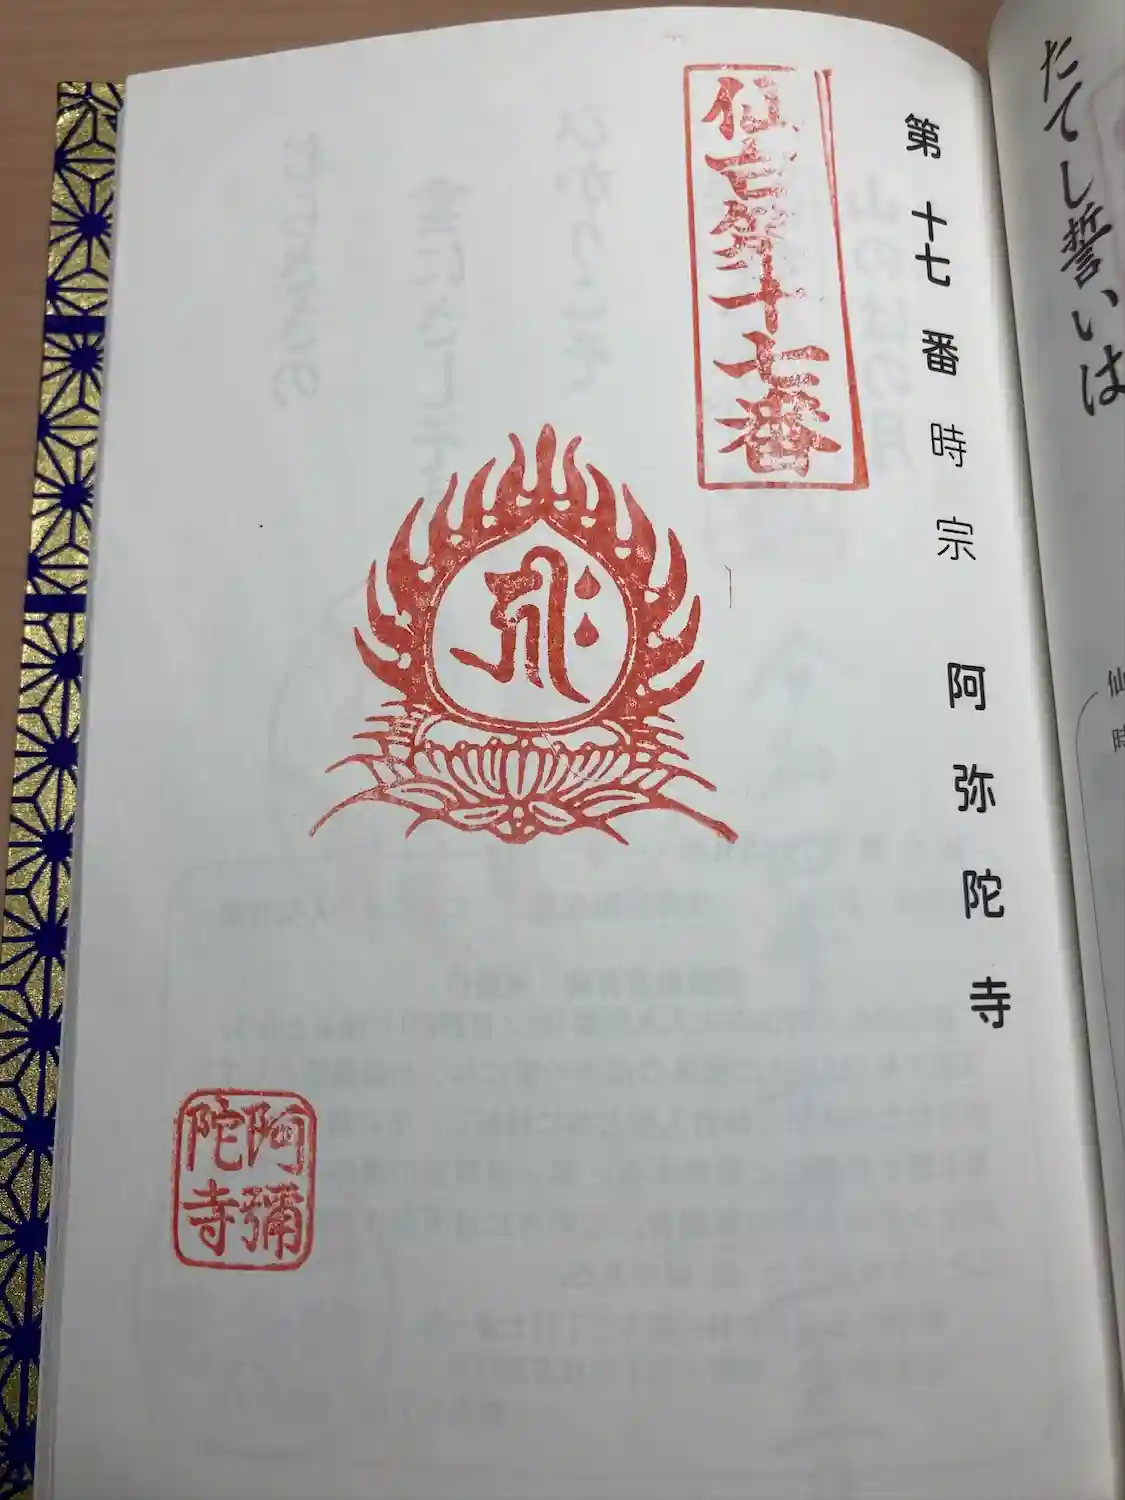 たてし誓いは
第十七番 時宗 阿弥陀寺
仙台第十七番
阿彌
陀寺